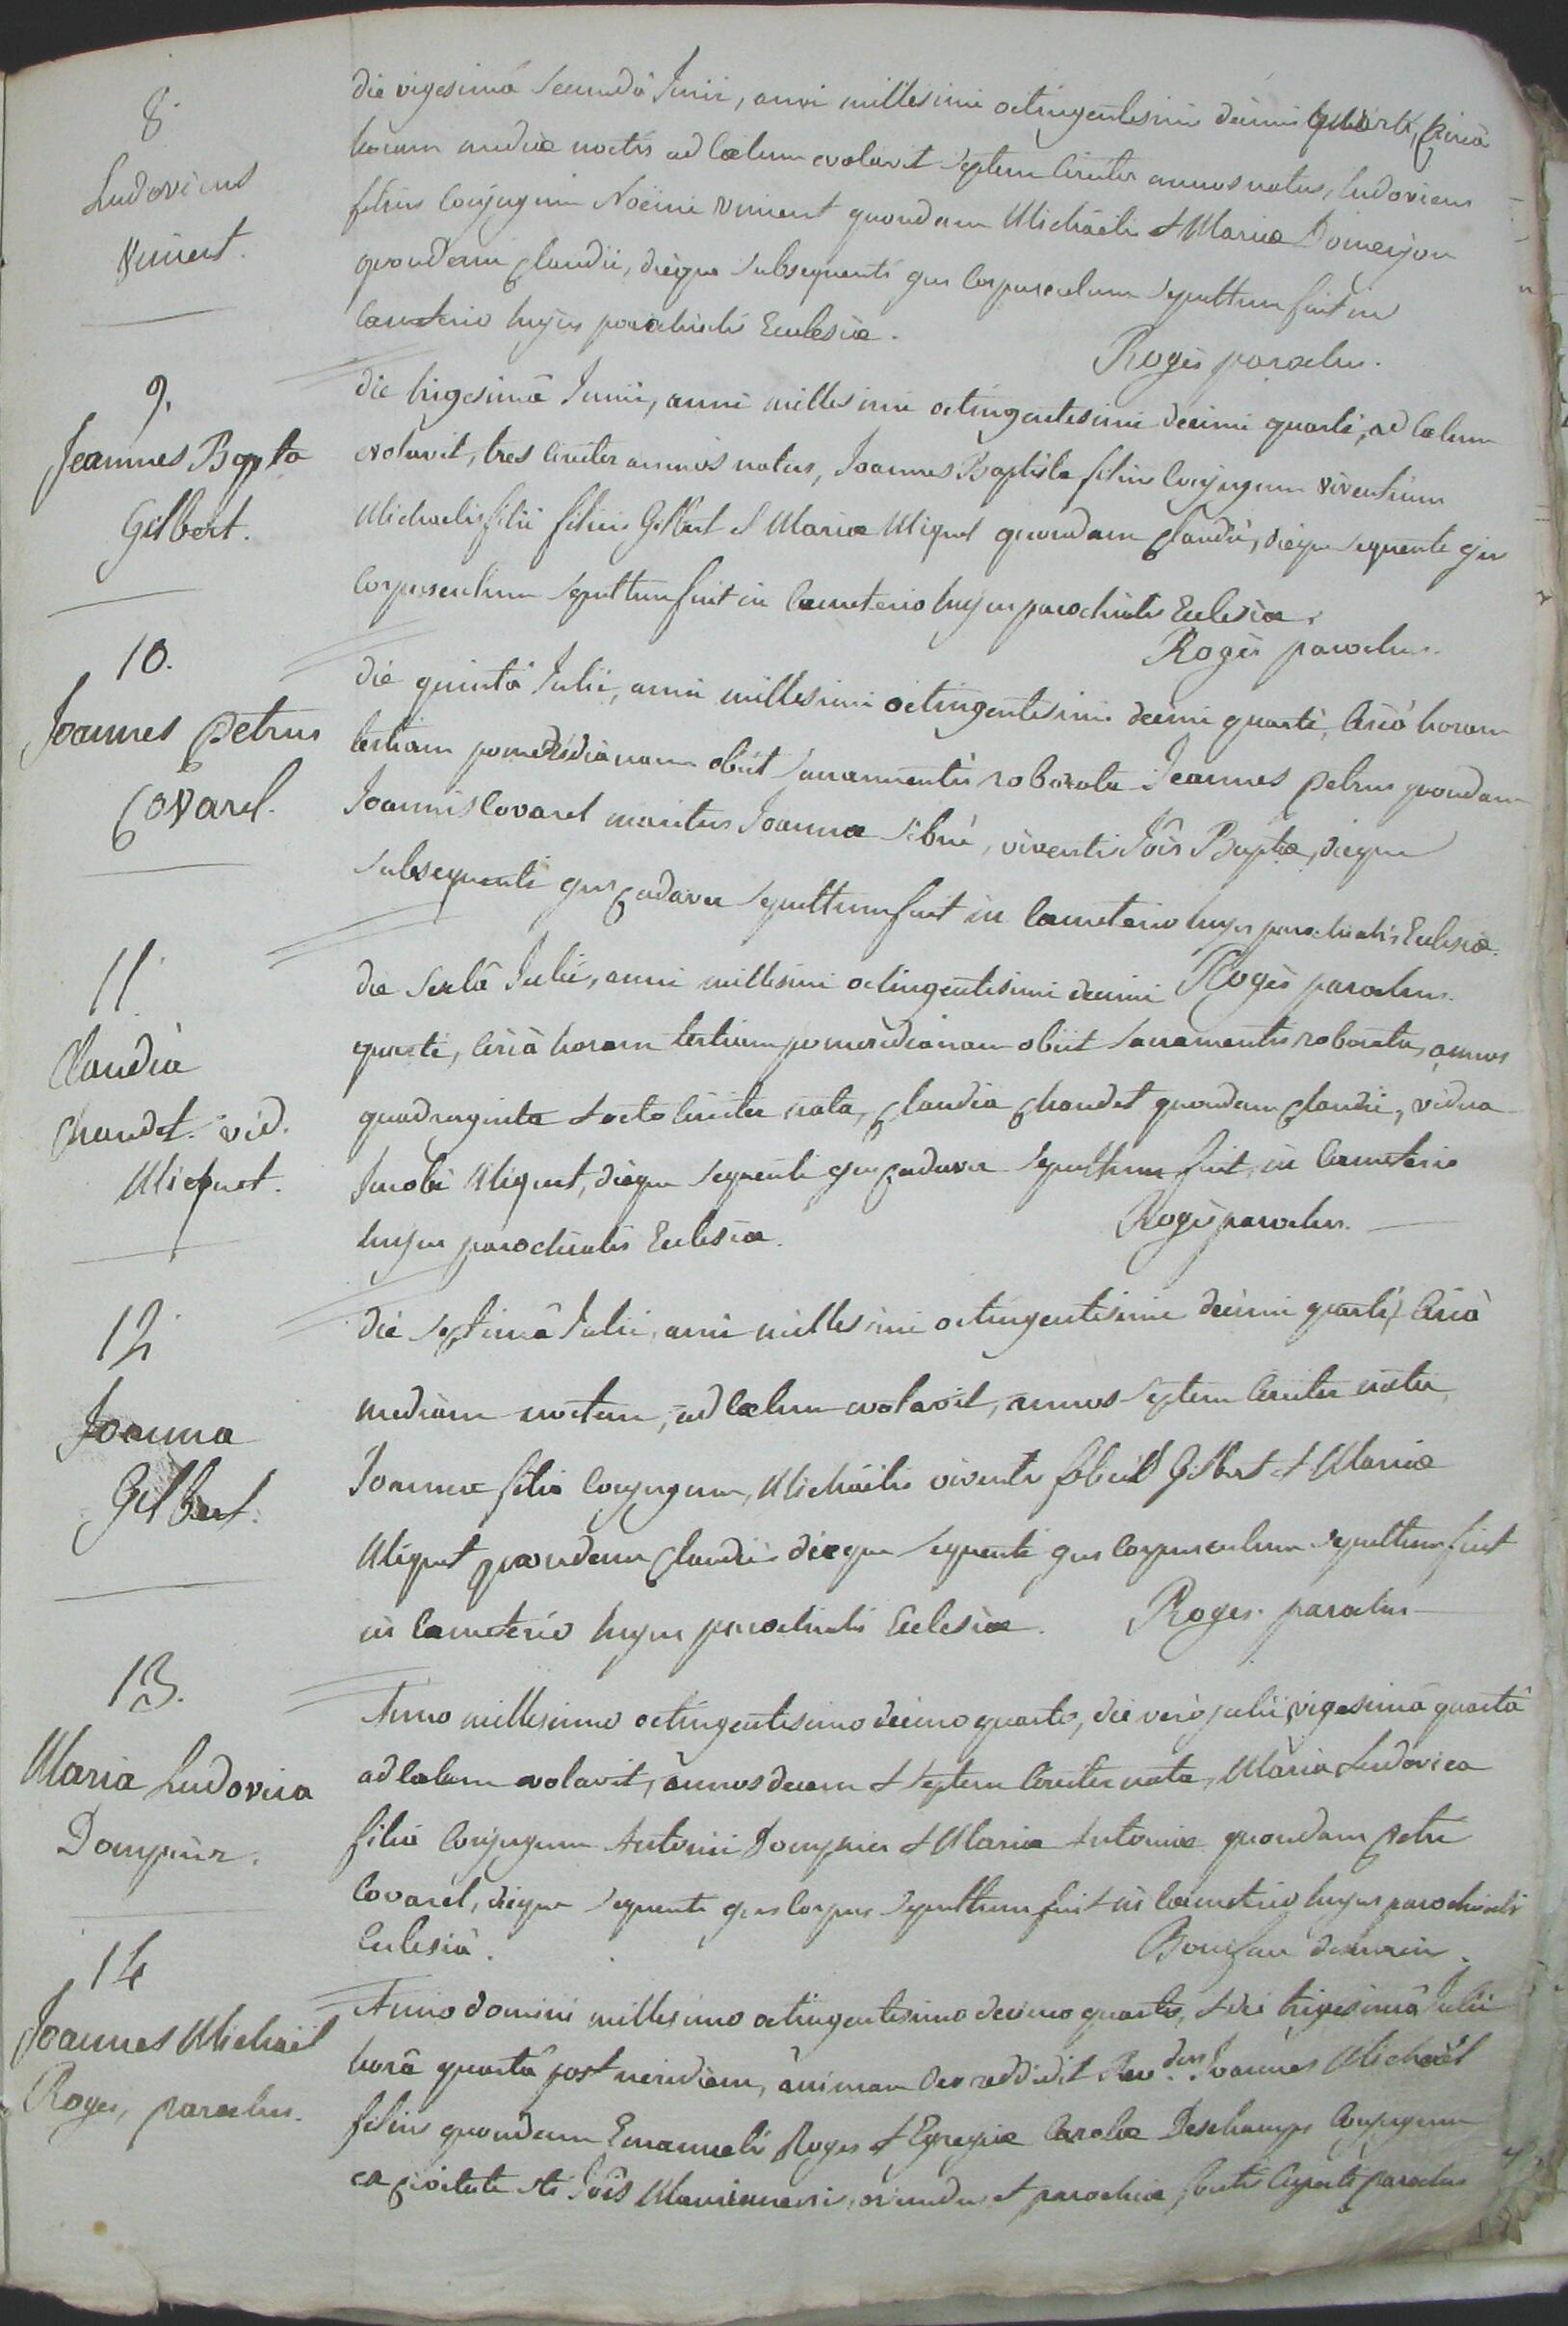 8
Ludovicus
Vincent.
die vigesimâ secundâ Junii, anni millesimi octingentesimi decimi quarti, circà
horam mediæ noctis ad Cælum evolavit septem circiter annos natus, Ludovicus
filius Conjugum Vincent quondam Michäelis & Mariæ Domenjon
quondam Claudii, dièque subsequenti ejus Corpusculum sepultum fuit in
Cæmeterio hujus parochialis Ecclesiæ.
Roges parochus.
9.
Joannes Bapta
Gilbert.
die trigesimâ Junii, anni millesimi octingentesimi decimi quarti, ad Cælum
evolavit, tres circiter annos natus, Joannes Baptista filius Conjugum viventium
Michaelis filii Gilbert & Mariæ Miquet quondam Claudii, dièque sequente ejus
Corpusculum sepultum fuit in Cæmeterio hujus parochialis Ecclesiæ.
Roges parochus.
10.
Joannes petrus
Covarel.
die quintâ Julii, anni millesimi octingentesimi decimi quarti, Circà horam
tertiam pomeridianam obiit Sacramentis roboratus Joannes petrus quondam
Joannis Covarel maritus Joannæ viventis Jois Baptæ, dieque
subsequenti ejus Cadaver sepultum fuit in Cæmeterio hujus parochialis Ecclesiæ.
Roges parochus.
11
Claudia
Chaudet. vid.
Micquet.
die Sextâ Julii, anni millesimi octingentesimi decimi
quarti, Circà horam tertiam pomeridianam obiit Sacramentis roborata, annos
quadraginta & octo Circiter nata, Claudia Chaudet quondam Claudii, vidua
Jacobi Miquet, dièque sequenti ejus Cadaver sepultum fuit in Cæmeterio
hujus parochialis Ecclesiæ.
Roges parochus.
12
Joanna
Gilbert.
die septimâ Julii, anni millesimi octingentesimi decimi quarti, Circà
mediam noctem, ad Cælum evolavit, annos septem Circiter nata,
Joanna filia Conjugum, Michäelis viventis Gilbert & Mariæ
Miquet quondam Claudii dieque sequenti ejus Corpusculum sepultum fuit
in Cæmeterio hujus parochialis Ecclesiæ.
Roges. parochus
13.
Maria Ludovica
Dompnier.
Anno millesimo octingentesimo decimo quarto, die verò julii vigesimâ quartâ
ad Cælum evolavit, annos decem & septem Circiter nata, Maria Ludovica
filia Conjugum Antonii Dompnier & Mariæ Antoniæ quondam Petri
Covarel, dieque sequenti ejus Corpus sepultum fuit in Cæmeterio hujus parochialis
Ecclesiæ.
14
Joannes Michaël
Roges, parochus.
Anno domini millesimo octingentesimo decimo quarto, & die trigesimâ Julii
horâ quartâ post meridiem, animam Deo reddidit Revdus Joannes Michaël
filius quondam Emanuelis Roges & Egregiæ Carolæ Deschamps Conjugum
ex Civitate sti Jois Mauriannensis, oriundus & parochiæ parochus